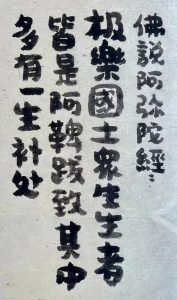 佛說阿弥陀經：
极樂國土眾生生者
皆是阿鞞跋致其中
多有一生补处